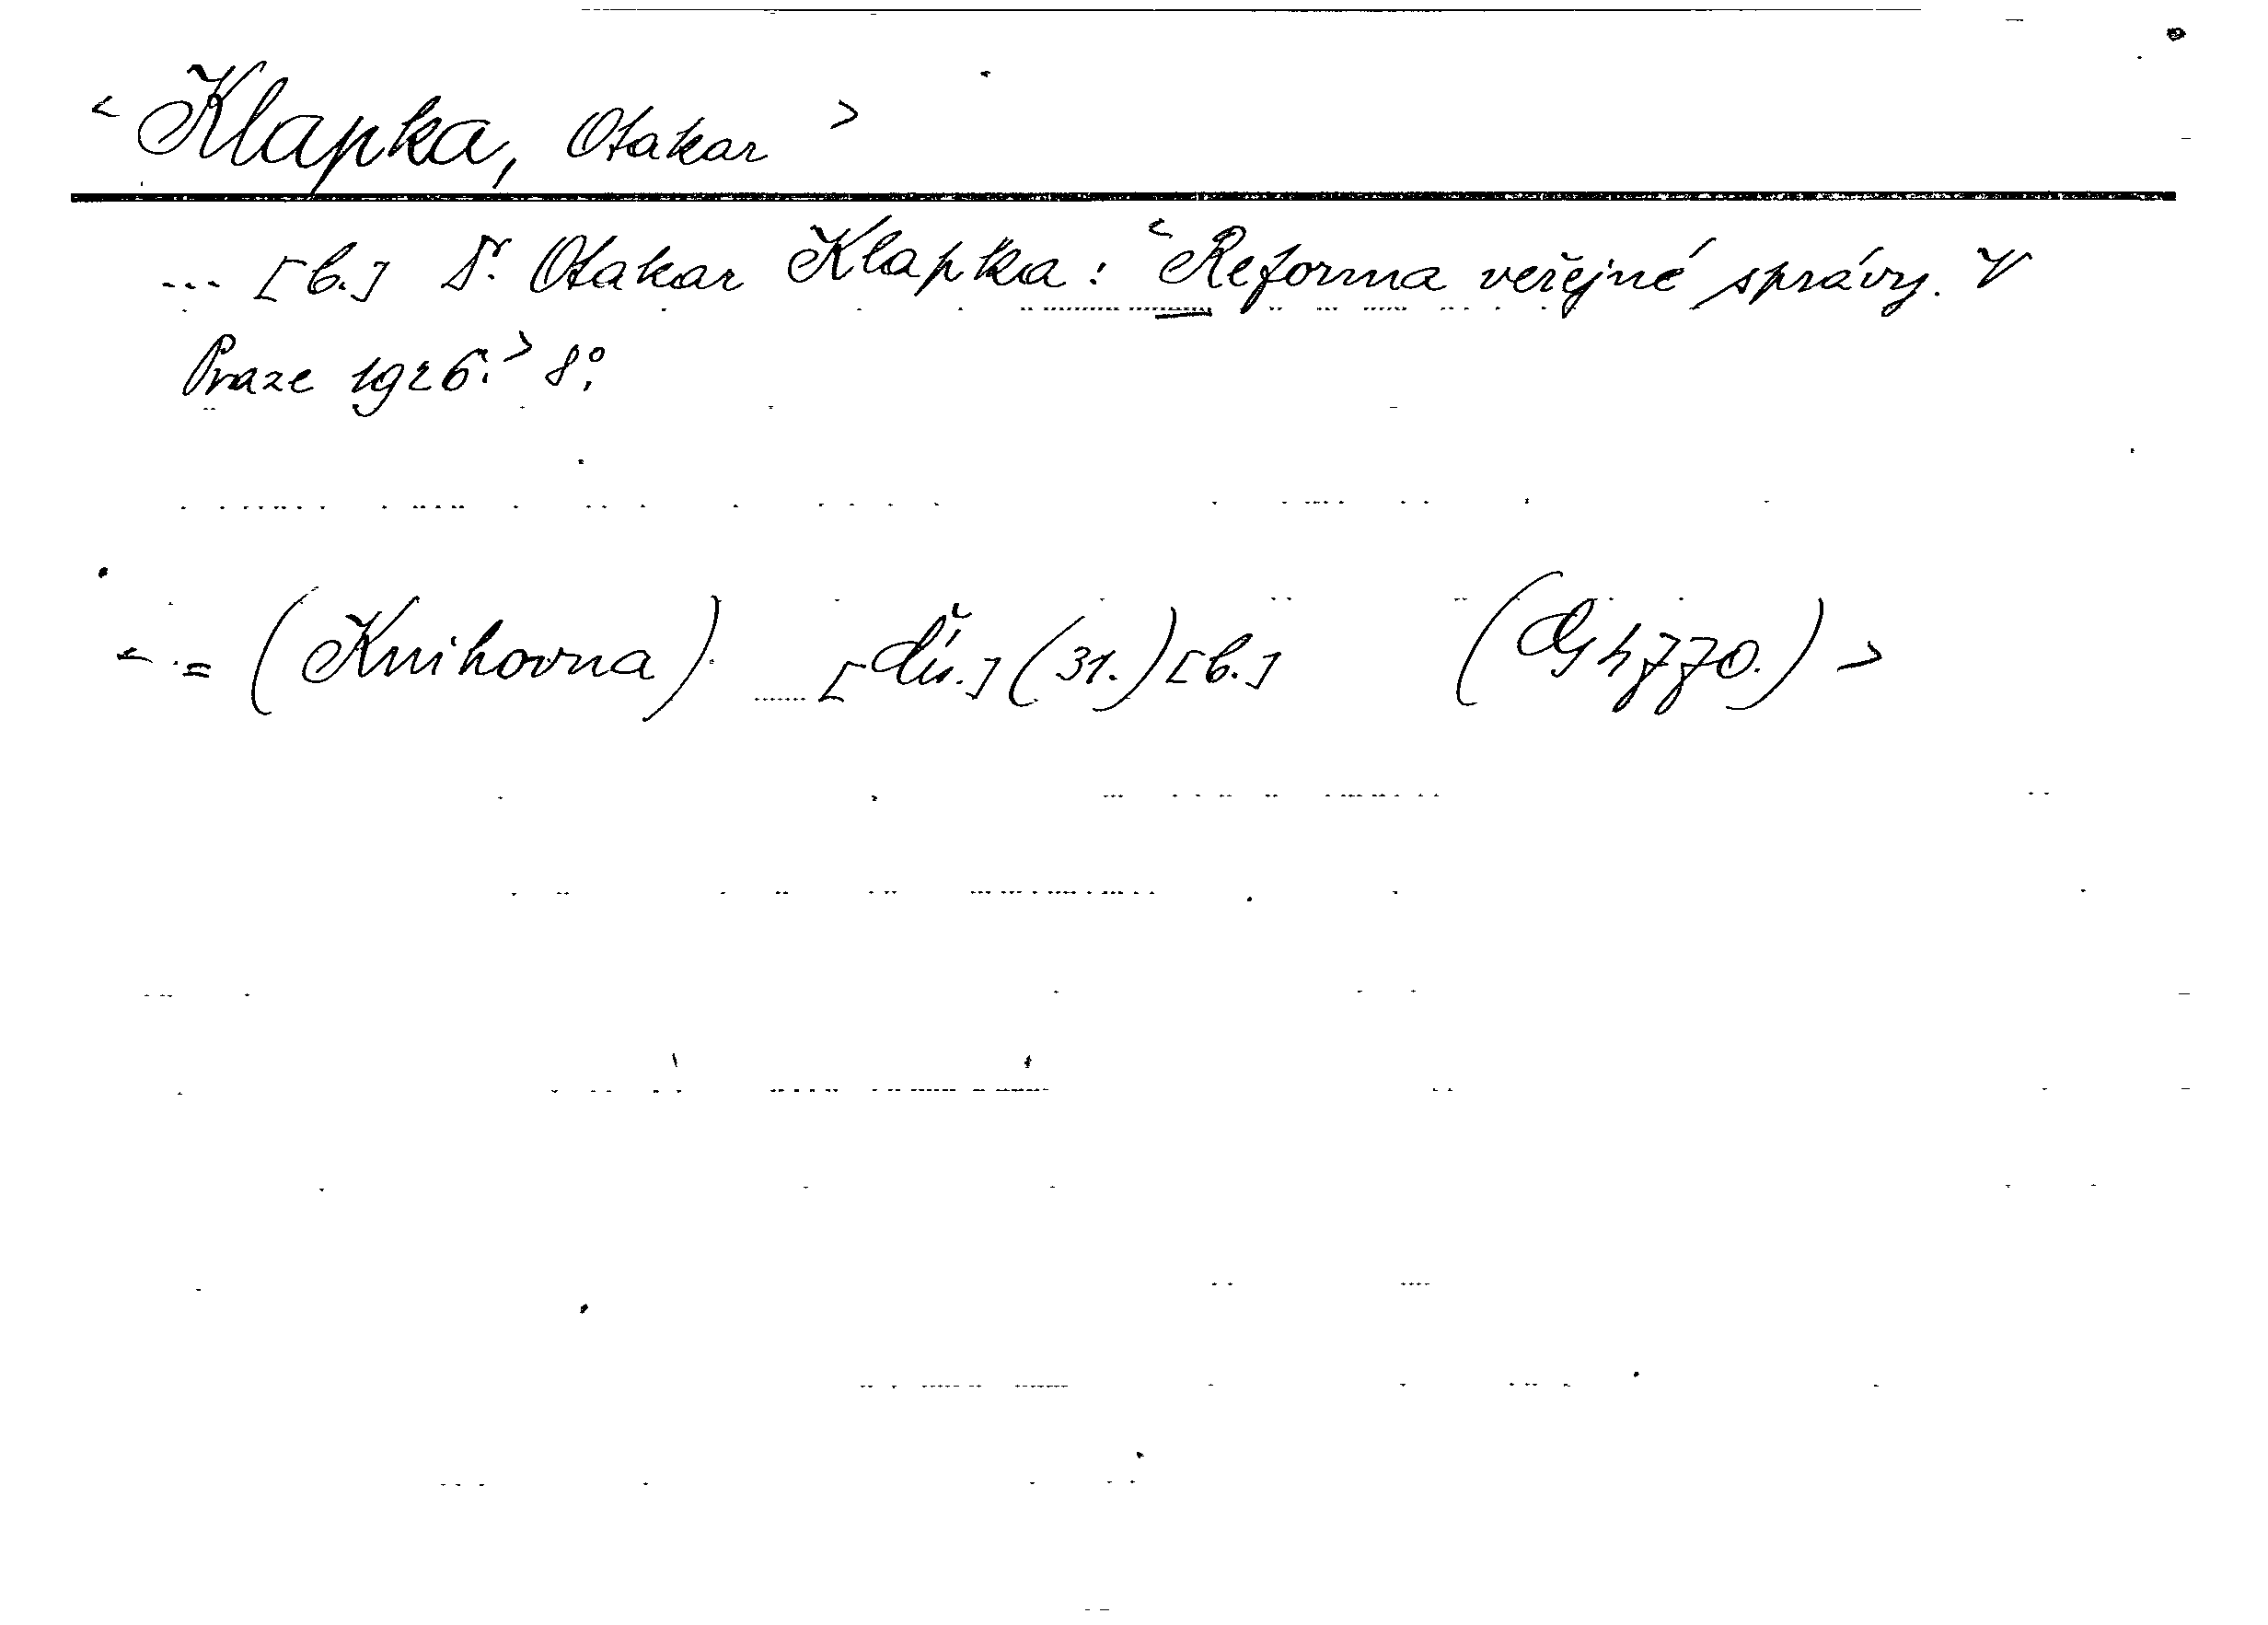 < Klapka, Otakar >
... [b.] Dr. Otakar Klapka: < Reforma veřejné správy. V
Praze 1926. > 8°.
< = (Knihovna) ... [čís.] (31.) [b.] (Gh 770.) >